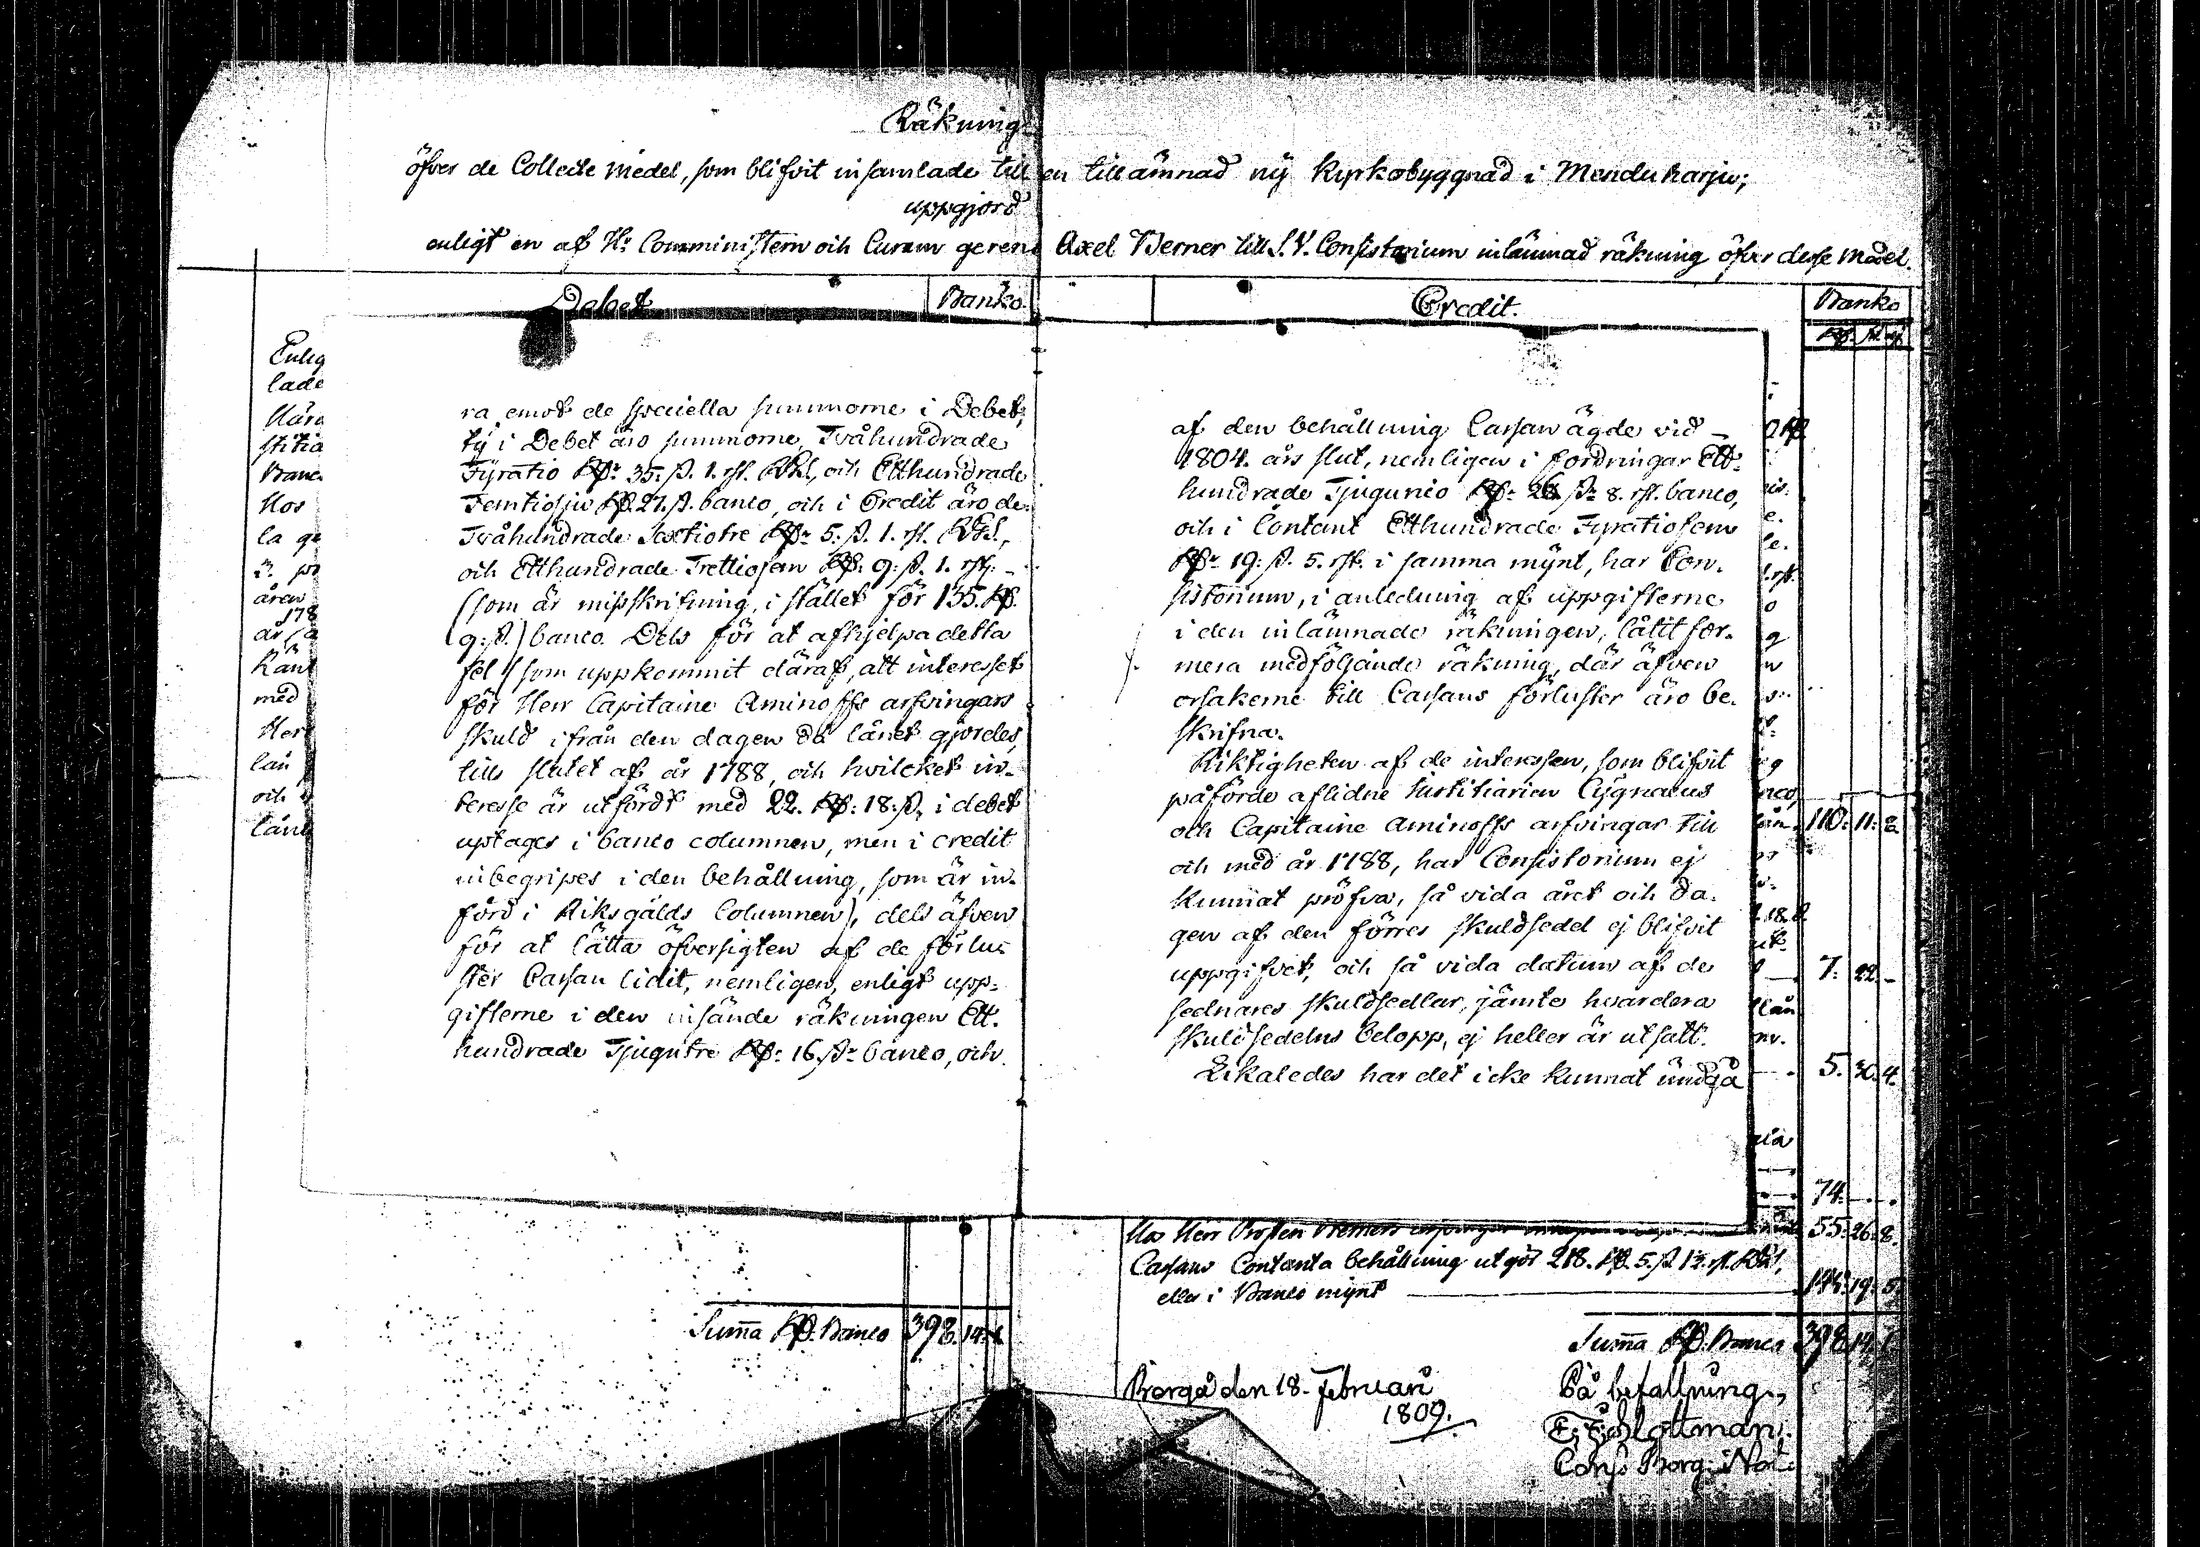 Räkning
öfver de Collecte medel, som blifvit insamlade till en tillämnad ny kyrkobyggnad i Mänduharju;
uppgjord
enligt en af Hr Comministern och Curam gerens Axel Werner till S.V. Consistorium inlämnad räkning öfver desse medel.
Debet Banko
Credit. Banko
Enlig
lade
Hära
stitia
Banc
Hos
la ge
åren
178
Ränt
med
Her
lån
och
låne
ra emot de speciella summorne i Debet;
ty i Debet äro summorne, Tvåhundrade
Fyratio Rd: 35: s. 1. rst. RGd, och Etthundrade
Femtiosju Rd. 27. s. banco, och i Credit äro de
Tvåhundrade Sextiotre Rd: 5: s. 1. rst. RGd,
och Etthundrade Trettiofem Rd. 9: s. 1. rst. –
(som är misskrifning, i stället för 135. Rd.
9: s.) banco. Dels för at afhjelpa detta
fel (som uppkommit däraf, att interesset
för Herr Capitaine Aminoffs arfvingars
skuld ifrån den dagen då lånet gjordes,
till slutet af år 1788, och hvilcket in-
teresse är utfördt med 22. Rd: 18: s. i debet
uptages i banco columnen, men i credit
inbegripes i den behållning, som är in-
förd i Riksgälds Columnen), dels äfven
för at lätta öfversigten af de förlu-
ster Cassan lidit, nemligen, enligt upp-
gifterne i den insände räkningen Ett-
hundrade Tjugutre Rd: 16. s: banco, och
af den behållning Cassan ägde vid –
1804. års slut, nemligen i fordringar Ett-
hundrade Tjugunio Rd: 26 s: 8. rst. banco,
och i Contant Etthundrade Fyratiofem
Rd: 19: s. 5. rst. i samma mynt, har Con-
sistorium, i anledning af uppgifterne
i den inlämnade räkningen, låtit for-
mera medföljande räkning, där äfven
orsakerne till Cassans förluster äro be-
skrifna.
Riktigheten af de interessen, som blifvit
påförde aflidne Justitiarien Cygnaeus
och Capitaine Aminoffs arfvingar till
och med år 1788, har Consistorium ej
kunnat pröfva, så vida året och da-
gen af den förres skuldsedel ej blifvit
uppgifvet, och så vida datum af de
sednares skuldsedlar, jämte hvardera
skuldsedelns belopp, ej heller är utsatt.
Likaledes har det icke kunnat undgå
110. 11. 8.
7. 22. –
5. 30. 4.
74. – .
Hos Herr Prosten Werners arfvingar 55. 26. 8.
Cassans Contanta behållning utgör 218. Rd. 5. s. 1 rst. RGd,
eller i Banco mynt 145. 19. 5.
Summa Rd. Banco 398. 14. 1.
Summa Rd. Banco 398. 14. 1.
Borgå den 18. Februari
1809.
På befallning,
Cons. Borg. Not.